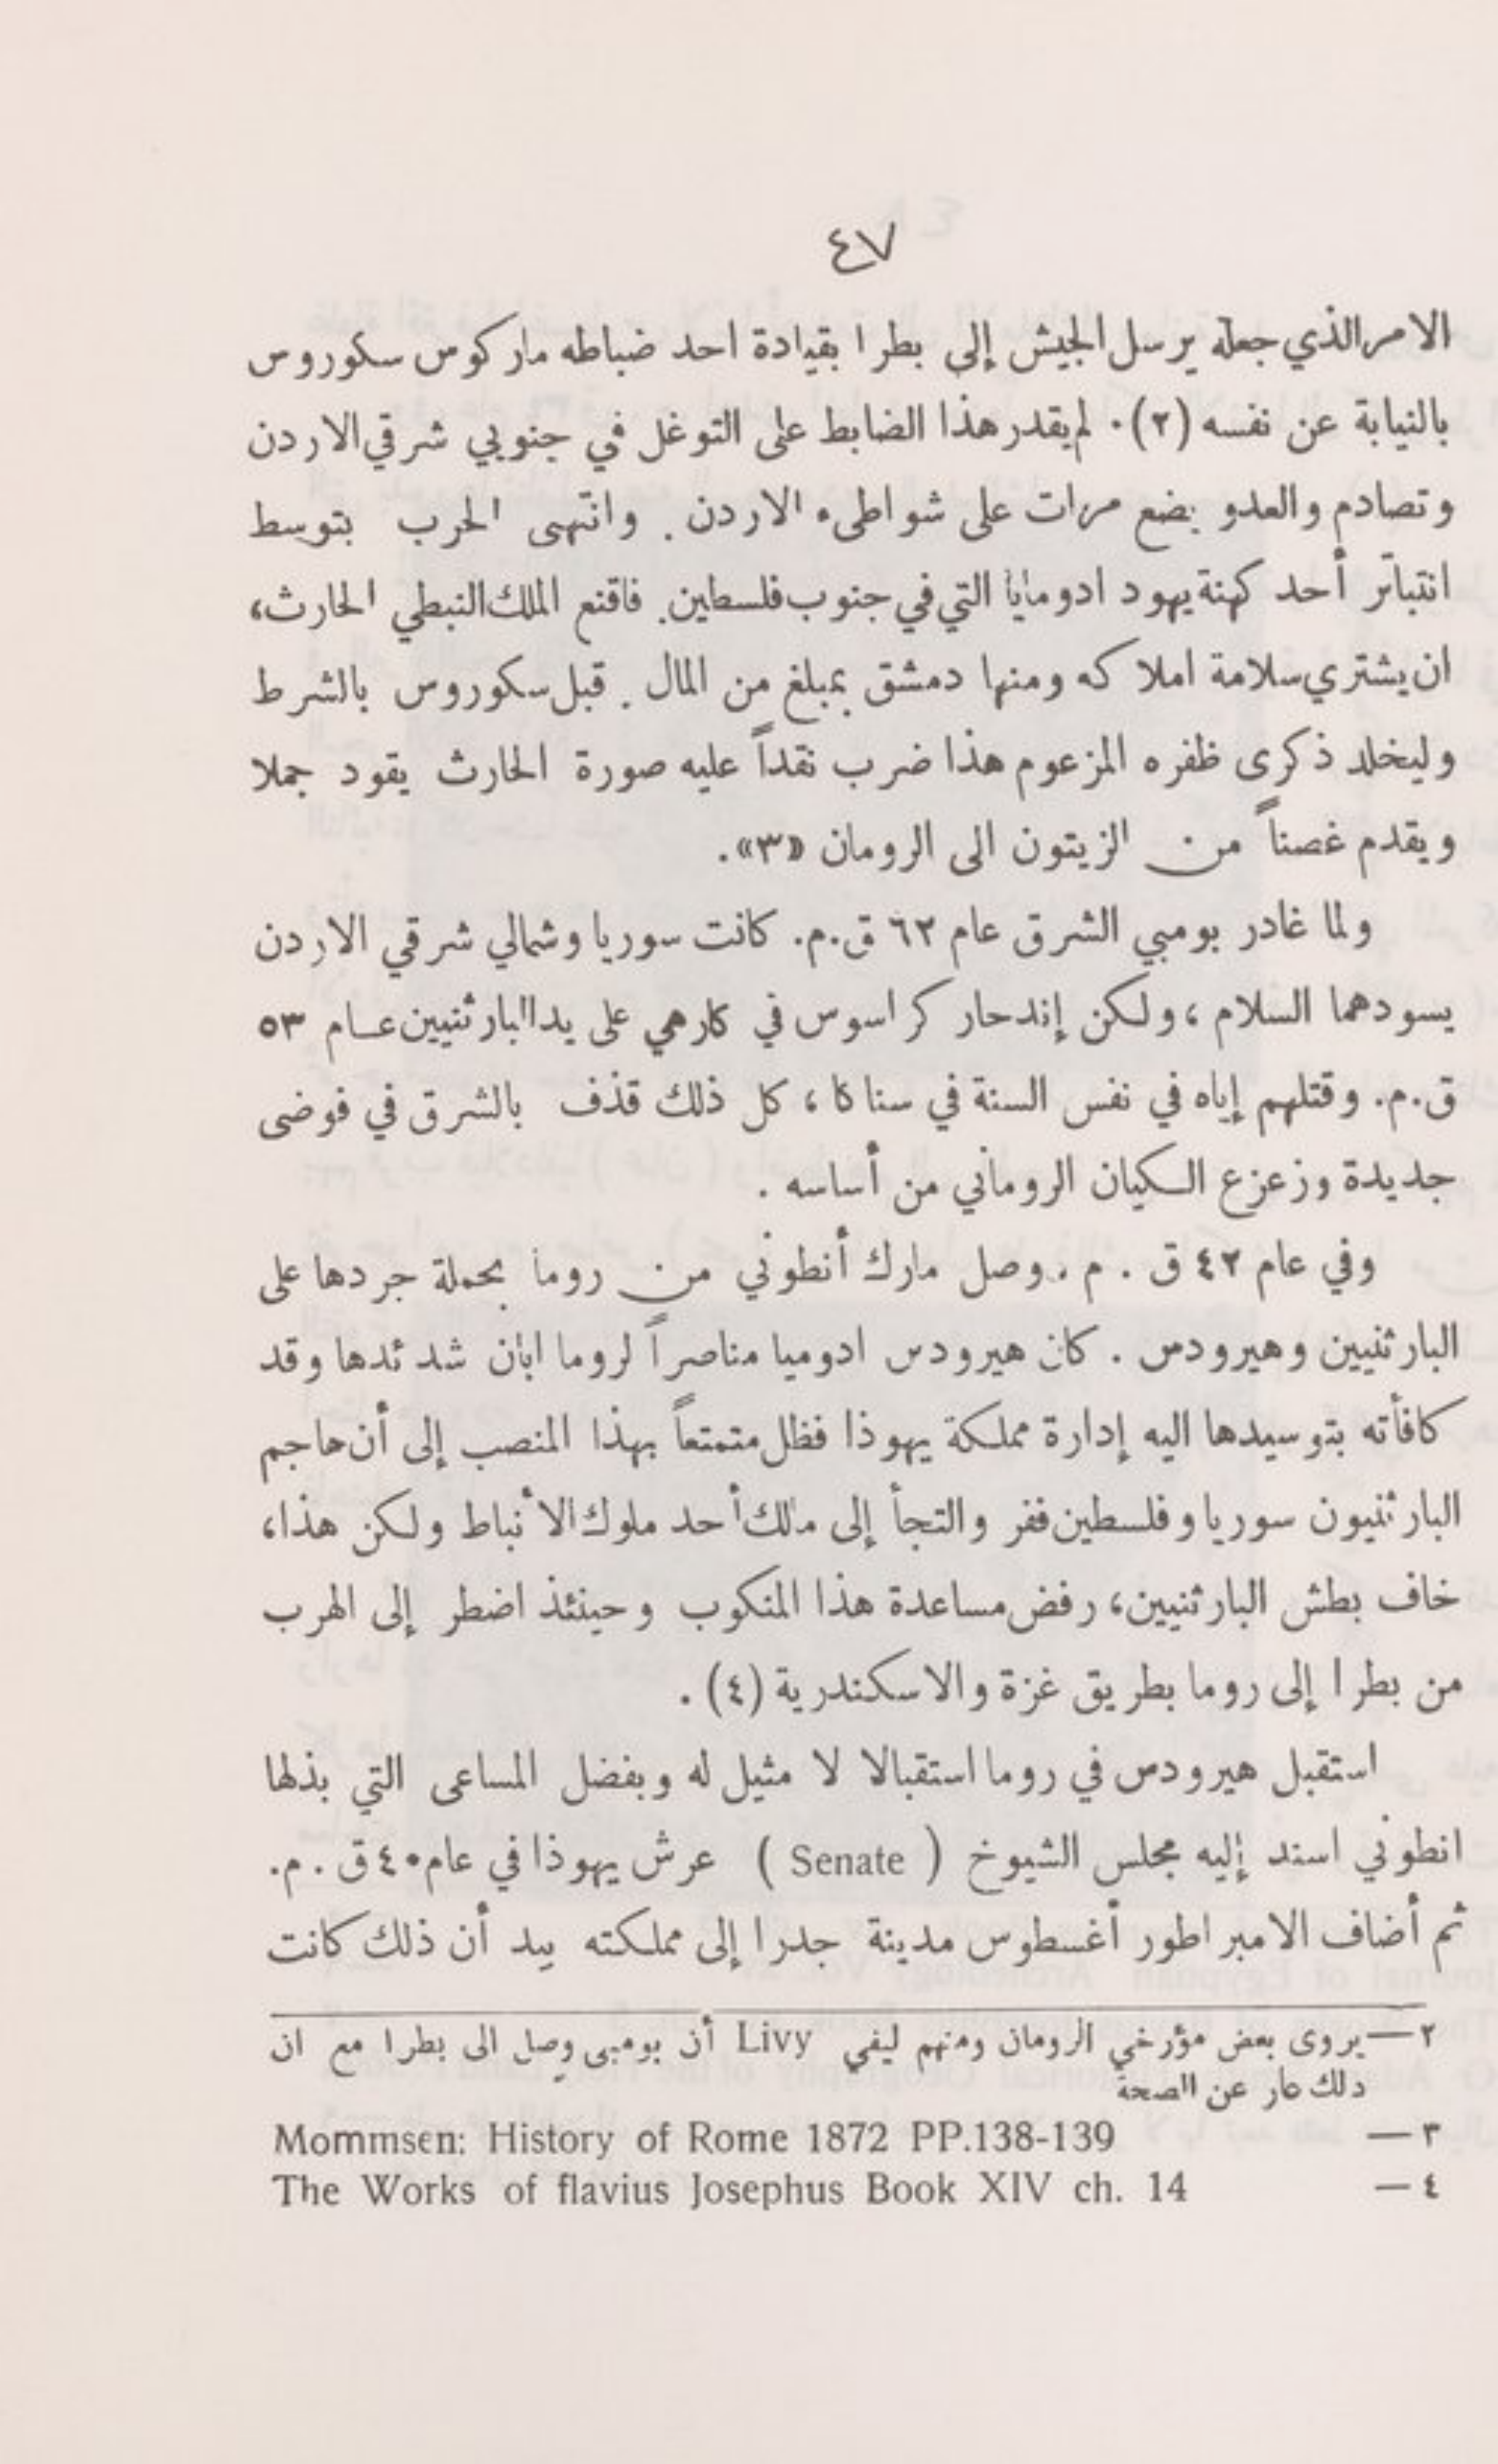 ٤٧
الامر الذي جعله يرسل الجيش إلى بطرا بقيادة احد ضباطه ماركوس سكوروس
بالنيابة عن نفسه (٢)٠ لم يقدر هذا الضابط على التوغل في جنوبي شرقي الاردن
وتصادم والعدو بضع مرات على شواطىء الاردن . وانتهى الحرب بتوسط
انتباتر أحد كهنة يهود ادومايا التي في جنوب فلسطين. فاقنع الملك النبطي الحارث،
ان يشتري سلامة املاكه ومنها دمشق بمبلغ من المال . قبل سكوروس بالشرط
وليخلد ذكرى ظفره المزعوم هذا ضرب نقداً عليه صورة الحارث يقود جملا
ويقدم غصناً من الزيتون الى الرومان «٣».
ولما غادر بومبي الشرق عام ٦٢ ق.م. كانت سوريا وشمالي شرقي الاردن
يسودهما السلام ، ولكن إندحار كراسوس في كارهي على يد البارثنيين عام ٥٣
ق.م. وقتلهم إياه في نفس السنة في سناكا ، كل ذلك قذف بالشرق في فوضى
جديدة وزعزع الكيان الروماني من أساسه .
وفي عام ٤٢ ق . م . وصل مارك أنطوني من روما بحملة جردها على
البارثنيين وهيرودس . كان هيرودس ادوميا مناصراً لروما ابان شدئدها وقد
كافأته بتوسيدها اليه إدارة مملكة يهوذا فظل متمتعاً بهذا المنصب إلى أن هاجم
البارثنيون سوريا وفلسطين ففر والتجأ إلى مالك أحد ملوك الأنباط ولكن هذا،
خاف بطش البارثنيين، رفض مساعدة هذا المنكوب وحينئذ اضطر إلى الهرب
من بطرا إلى روما بطريق غزة والاسكندرية (٤) .
استقبل هيرودس في روما استقبالا لا مثيل له وبفضل المساعى التي بذلها
انطوني اسند إليه مجلس الشيوخ ( Senate ) عرش يهوذا في عام ٤٠ ق . م.
ثم أضاف الامبراطور أغسطوس مدينة جدرا إلى مملكته بيد أن ذلك كانت
٢—يروى بعض مؤرخي الرومان ومنهم ليفي Livy أن بومبى وصل الى بطرا مع ان
ذلك عار عن الصحة
٣ — Mommsen: History of Rome 1872 PP.138-139
٤ — The Works of flavius Josephus Book XIV ch. 14